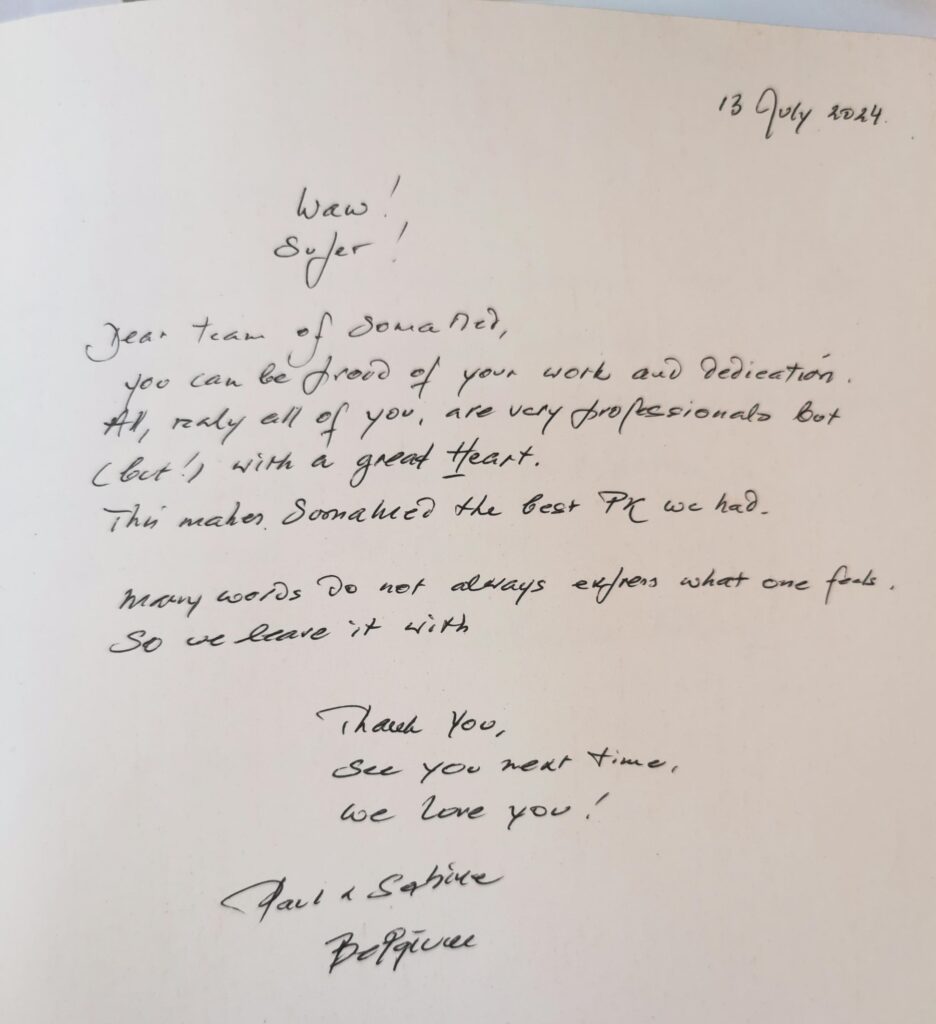 13 July 2024.
Waw!
Super!
Dear team of SomaMed,
you can be proud of your work and dedication.
All, realy all of you, are very professionals but
(but!) with a great Heart.
This makes SomaMed the best PK we had.
Many words do not always express what one feels.
So we leave it with
Thank You,
See you next time,
We love you!
Paul & Sabine
Belgium